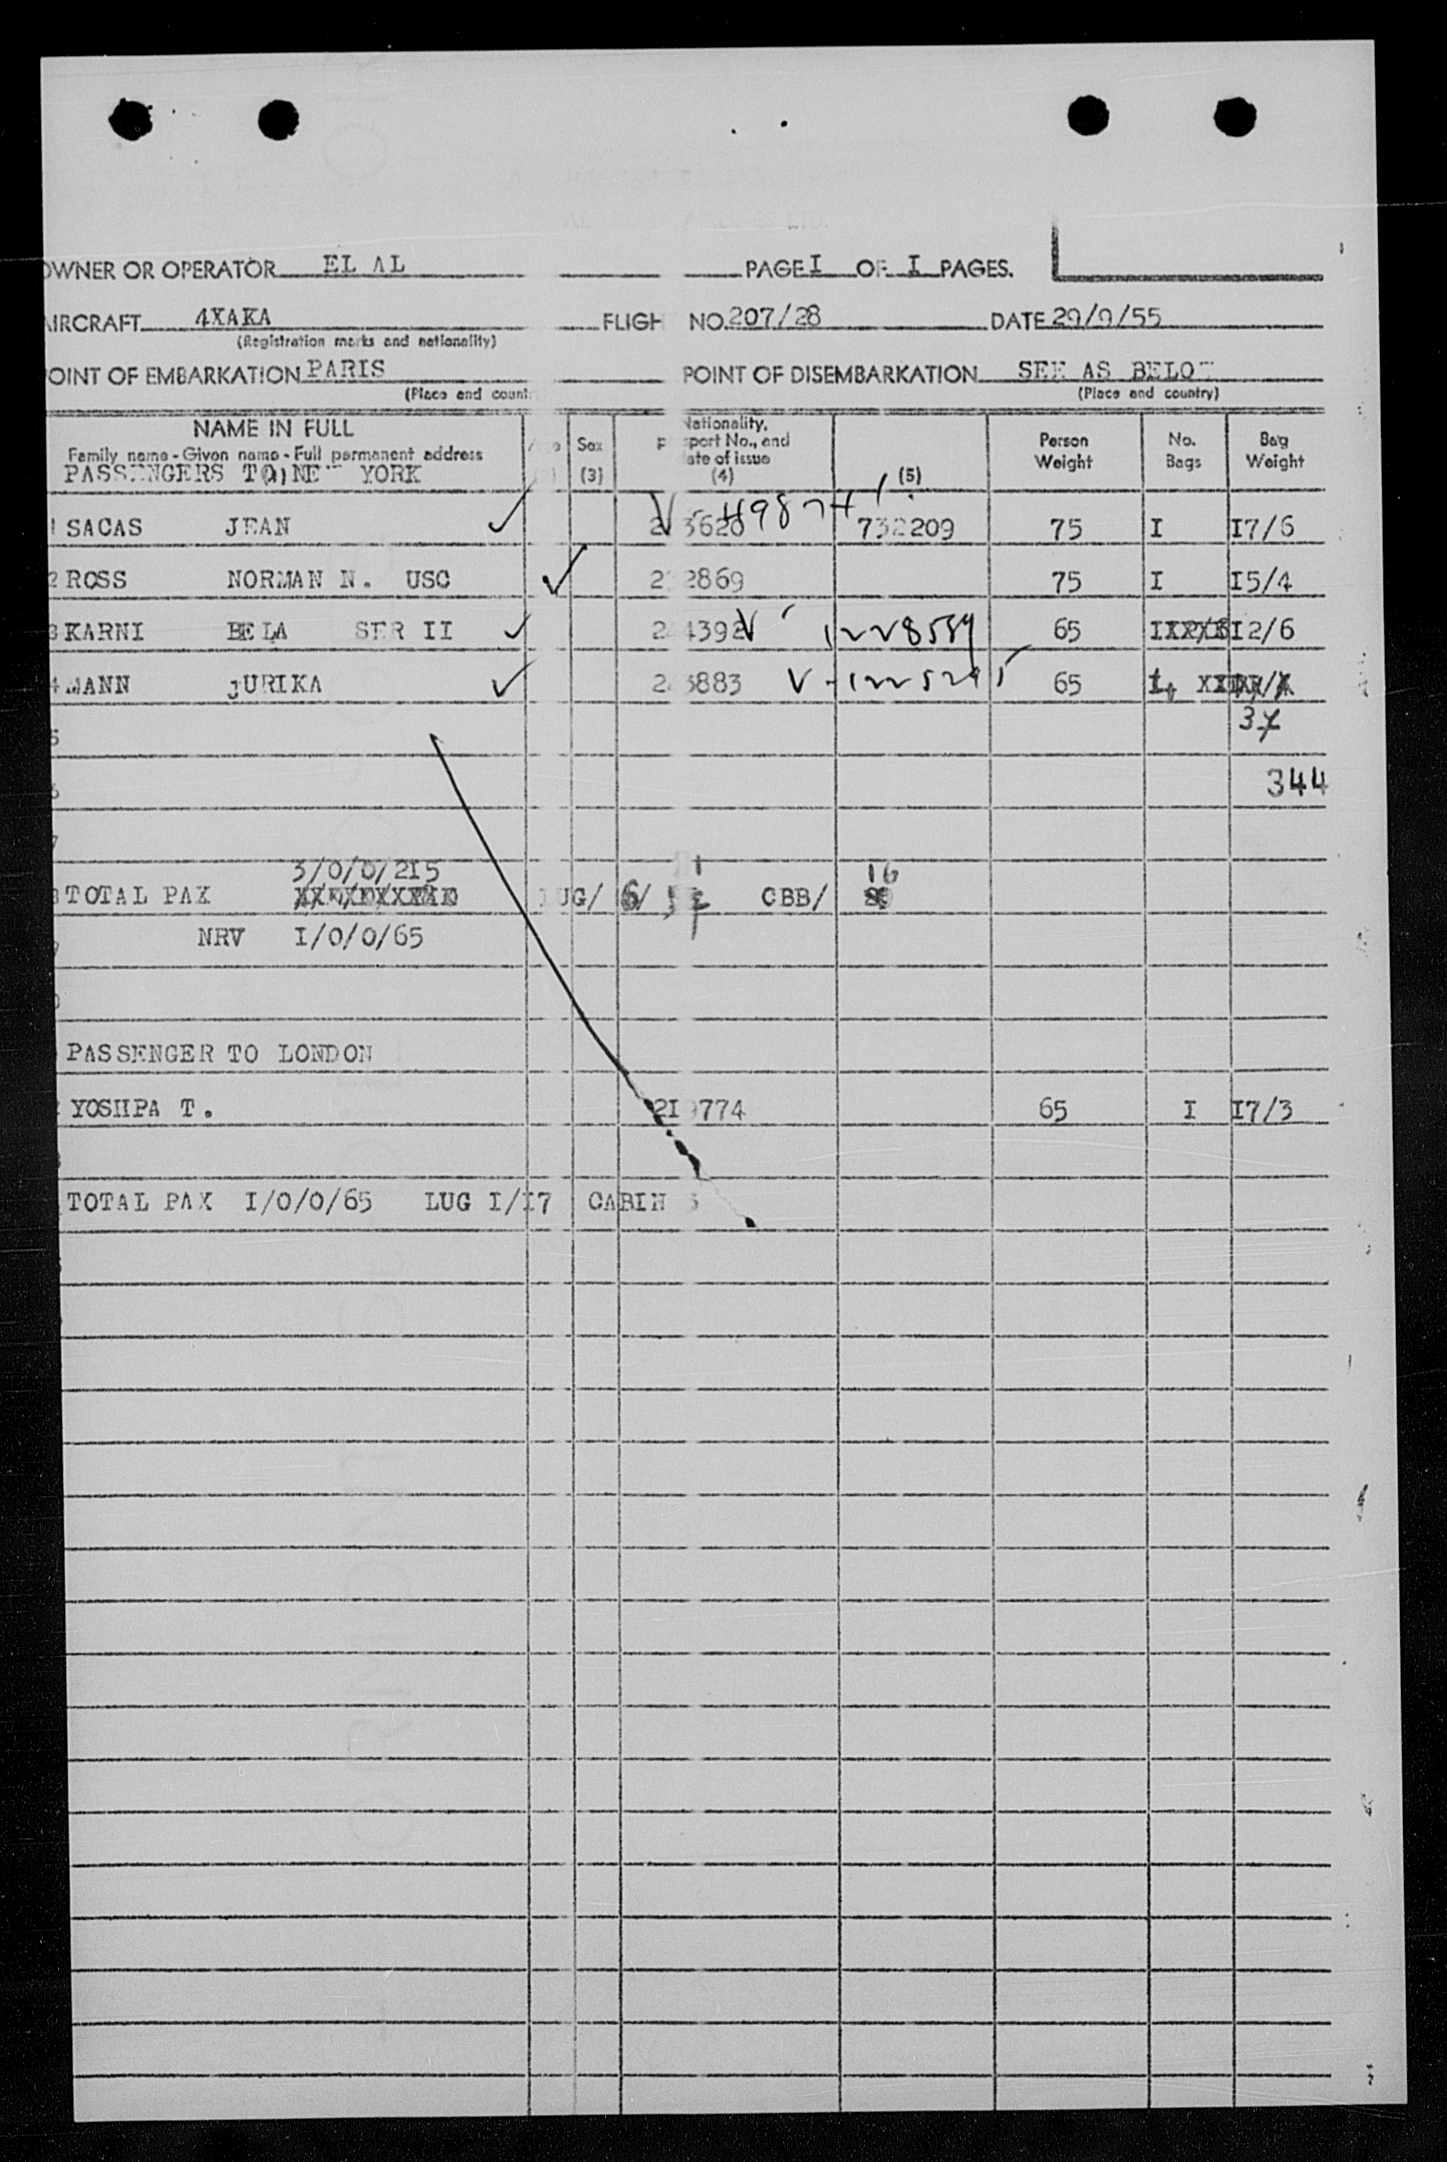 OWNER OR OPERATOR EL AL PAGE I OF I PAGES.
AIRCRAFT 4XAKA FLIGH NO. 207/28 DATE 29/9/55
(Registration marks and nationality)
POINT OF EMBARKATION PARIS POINT OF DISEMBARKATION SEE AS BELOW
(Place and count (Place and country)
NAME IN FULL
Family name - Given name - Full permanent address
Sex
Nationality, port No., and ate of issue
Person Weight No. Bags Bag Weight
(3) (4) (5)
PASSENGERS TO NEW YORK
1 SACAS JEAN 732209 75 I I7/6
2 ROSS NORMAN N. USC 2869 75 I I5/4
3 KARNI BELA SER II 4392 V 65 I2/6
4 MANN JURIKA 3883 65
37
344
3/0/0/2I5 16
TOTAL PAX UG/ 6/ CBB/
NRV I/0/0/65
PASSENGER TO LONDON
YOSHPA T. 774 65 I I7/3
TOTAL PAX I/0/0/65 LUG I/I7 CABIN